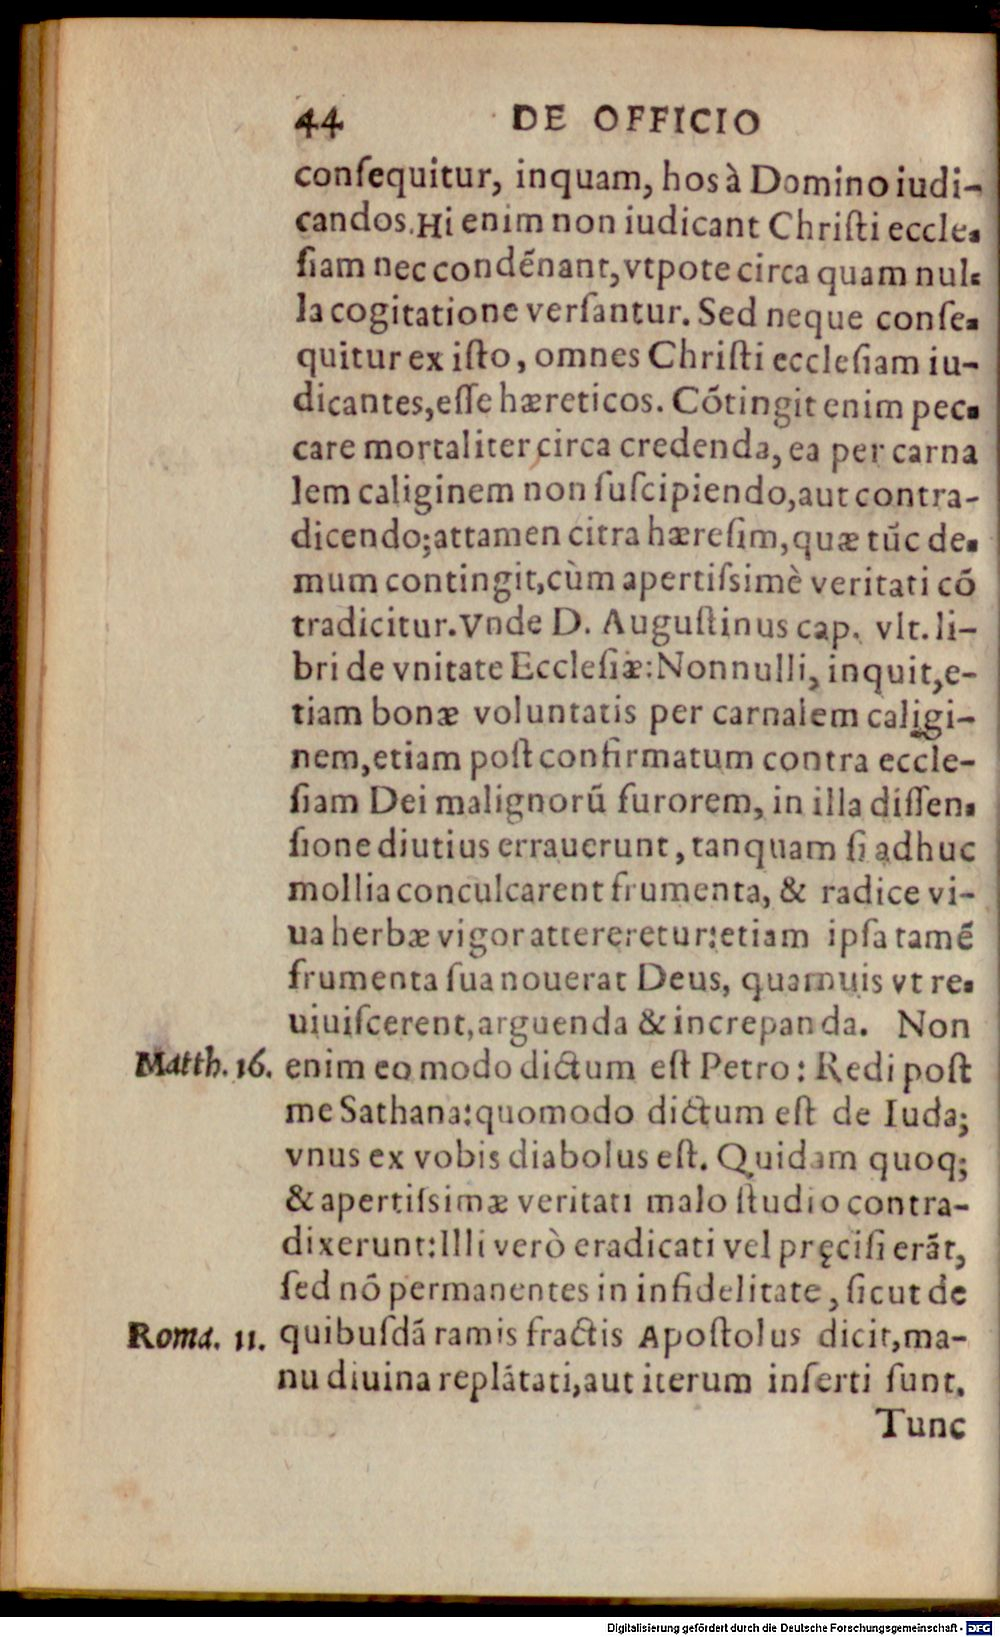 44 DE OFFICIO
conſequitur, inquam, hos à Domino iudi-
candos. Hi enim non iudicant Chriſti eccle-
ſiam nec condẽnant, vtpote circa quam nul-
la cogitatione verſantur. Sed neque conſe-
quitur ex iſto, omnes Chriſti eccleſiam iu-
dicantes, eſſe hæreticos. Cõtingit enim pec-
care mortaliter circa credenda, ea per carna
lem caliginem non ſuſcipiendo, aut contra-
dicendo; attamen citra hæreſim, quæ tũc de-
mum contingit, cùm apertiſsimè veritati cõ
tradicitur. Vnde D. Auguſtinus cap. vlt. li-
bri de vnitate Eccleſiæ: Nonnulli, inquit, e-
tiam bonæ voluntatis per carnalem caligi-
nem, etiam poſt confirmatum contra eccle-
ſiam Dei malignorũ furorem, in illa diſſen-
ſione diutius errauerunt, tanquam ſi adhuc
mollia conculcarent frumenta, & radice vi-
ua herbæ vigor attereretur: etiam ipſa tamẽ
frumenta ſua nouerat Deus, quamuis vt re-
uiuiſcerent, arguenda & increpanda. Non
Matth. 16. enim eo modo dictum eſt Petro: Redi poſt
me Sathana: quomodo dictum eſt de Iuda;
vnus ex vobis diabolus eſt. Quidam quoq;
& apertiſsimæ veritati malo ſtudio contra-
dixerunt: Illi verò eradicati vel pręciſi erãt,
ſed nõ permanentes in infidelitate, ſicut de
Roma. 11. quibuſdã ramis fractis Apoſtolus dicit, ma-
nu diuina replãtati, aut iterum inſerti ſunt.
Tunc
Digitalisierung gefördert durch die Deutsche Forschungsgemeinschaft - DFG